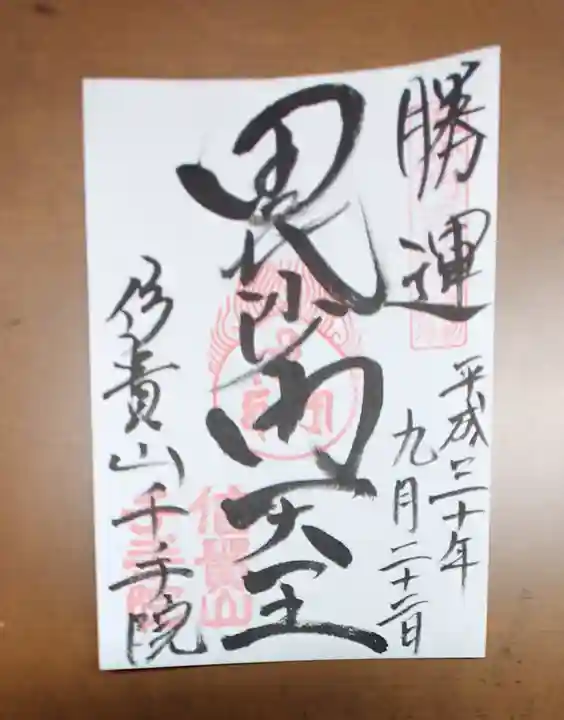 勝運
平成三十年
九月二十三日
毘沙門天王
信貴山千手院
信貴山